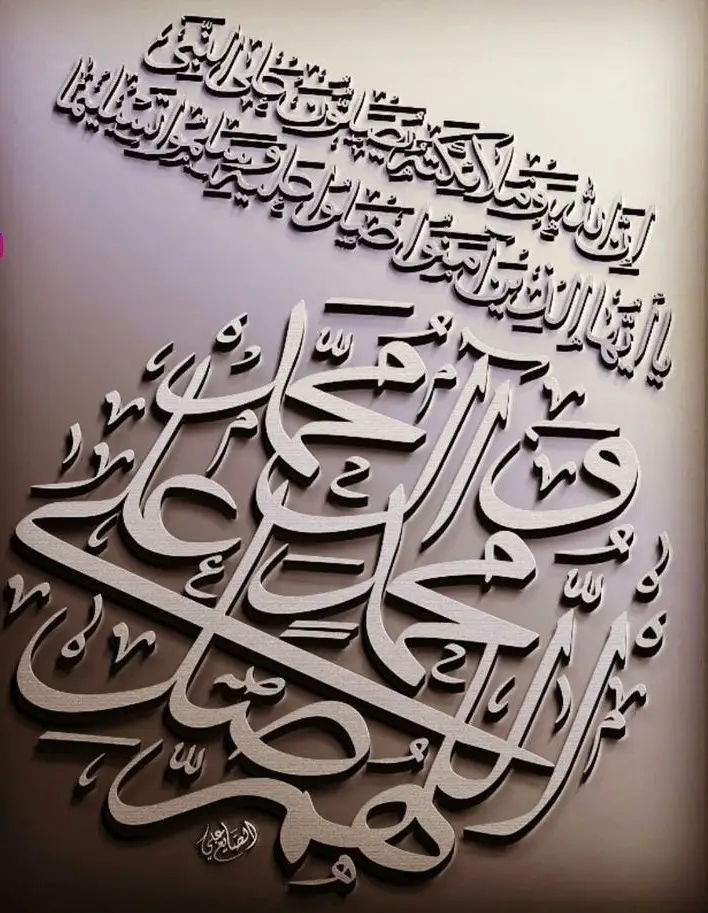 إِنَّ اللهَ وَمَلَائِكَتَهُ يُصَلُّونَ عَلَى النَّبِيِّ
يَا أَيُّهَا الَّذِينَ آمَنُوا صَلُّوا عَلَيْهِ وَسَلِّمُوا تَسْلِيمًا
اللَّهُمَّ صَلِّ عَلَى مُحَمَّدٍ وَآلِ مُحَمَّد
الصايغ علي